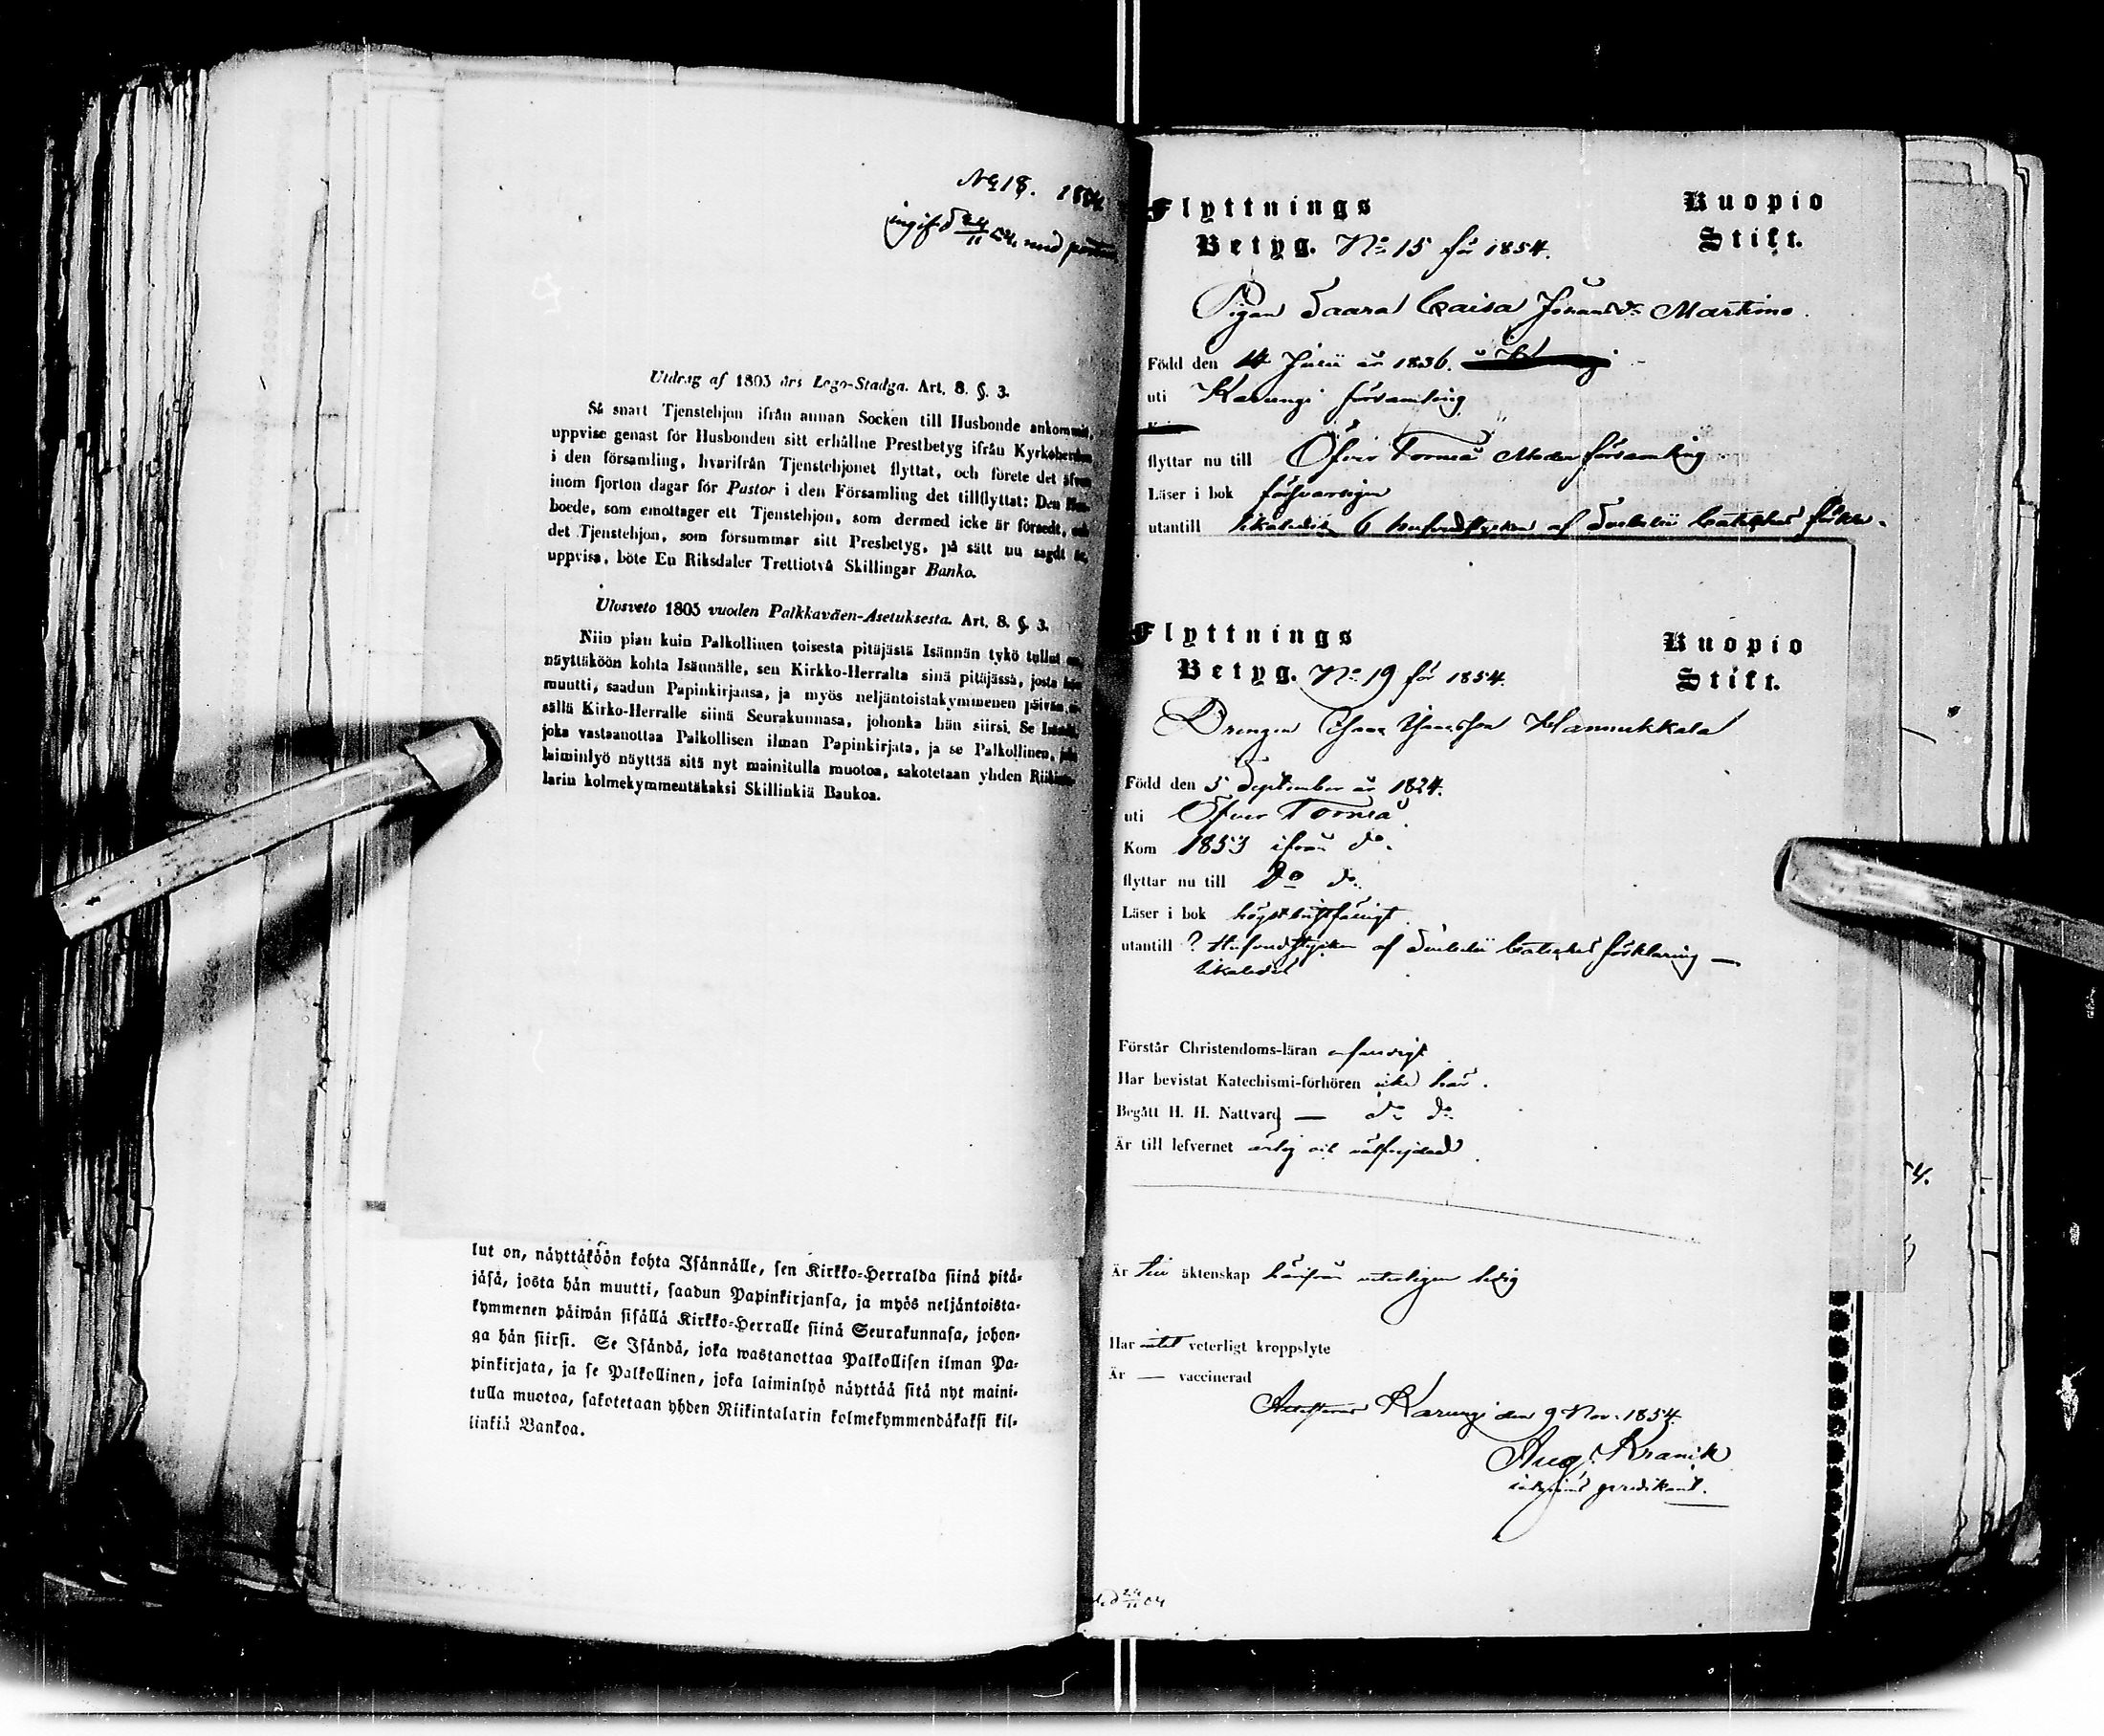 No 18. 1854.
Utdrag af 1805 års Lego-Stadga. Art. 8. §. 3.
Så snart Tjenstehjon ifrån annan Socken till Husbonde ankommit,
uppvise genast för Husbonden sitt erhållne Prestbetyg ifrån Kyrkoherden
i den församling, hvarifrån Tjenstehjonet flyttat, och förete det äfven
inom fjorton dagar för Pastor i den Församling det tillflyttat: Den Hus-
boede, som emottager ett Tjenstehjon, som dermed icke är försedt, och
det Tjenstehjon, som försummar sitt Presbetyg, på sätt nu sagdt är,
uppvisa, böte En Riksdaler Trettiotvå Skillingar Banko.
Ulosveto 1805 vuoden Palkkaväen-Asetuksesta. Art. 8. §. 3.
Niin pian kuin Palkollinen toisesta pitäjästä Isännän tykö tullut on,
näyttäköön kohta Isännälle, sen Kirkko-Herralta sinä pitäjässä, josta hän
muutti, saadun Papinkirjansa, ja myös neljäntoistakymmenen päivän si-
sällä Kirko-Herralle siinä Seurakunnasa, johonka hän siirsi. Se Isändä,
joka vastaanottaa Palkollisen ilman Papinkirjata, ja se Palkollinen, joka
laiminlyö näyttää sitä nyt mainitulla muotoa, sakotetaan yhden Riikinta-
larin kolmekymmentäkaksi Skillinkiä Baukoa.
lut on, näyttäköön kohta Isännälle, sen Kirkko-Herralda siinä pitä-
jäsä, josta hän muutti, saadun Papinkirjansa, ja myös neljäntoista-
kymmenen päiwän sisällä Kirkko-Herralle siinä Seurakunnasa, johon-
ga hän siirsi. Se Isändä, joka wastanottaa Palkollisen ilman Pa-
pinkirjata, ja se Palkollinen, joka laiminlyö näyttää sitä nyt maini-
tulla muotoa, sakotetaan yhden Riikintalarin kolmekymmendäkaksi kil-
linkiä Bankoa.
Flyttnings Kuopio
Betyg. No 15 för 1854. Stift.
Pigan Saara Caisa Johansdr Martimo.
Född den 14 Julii år 1836.
uti Karungi församling
flyttar nu till Öfver Torneå Moder församling
Läser i bok försvarligen
utantill likaledes 6 hufvudstycken af Svebelii Cateches förkla-
Flyttnings Kuopio
Betyg. No 19 för 1854. Stift.
Drengen Hannukkala
Född den 5 September år 1824.
uti Öfver Torneå
Kom 1853 ifrån do.
flyttar nu till Do do.
Läser i bok högst
utantill ? Hufvudstycken af Svebelii Cateches förklaring —
likaledes
Förstår Christendoms-läran
Har bevistat Katechismi-förhören icke här.
Begått H. H. Nattvard — do do
Är till lefvernet ärlig och välfrejdad
Är till äktenskap härifrån veterligen ledig
Har intet veterligt kroppslyte
Är — vaccinerad
Attesterar Karungi den 9 Nov. 1854.
Aug. Kranck
predikant.